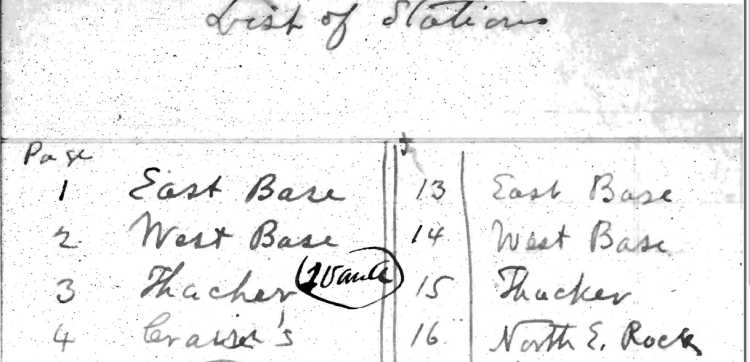 List of Stations
Page
1 East Base 13 East Base
2 West Base 14 West Base
3 Thacher 15 Thacker
4 16 North E. Rock